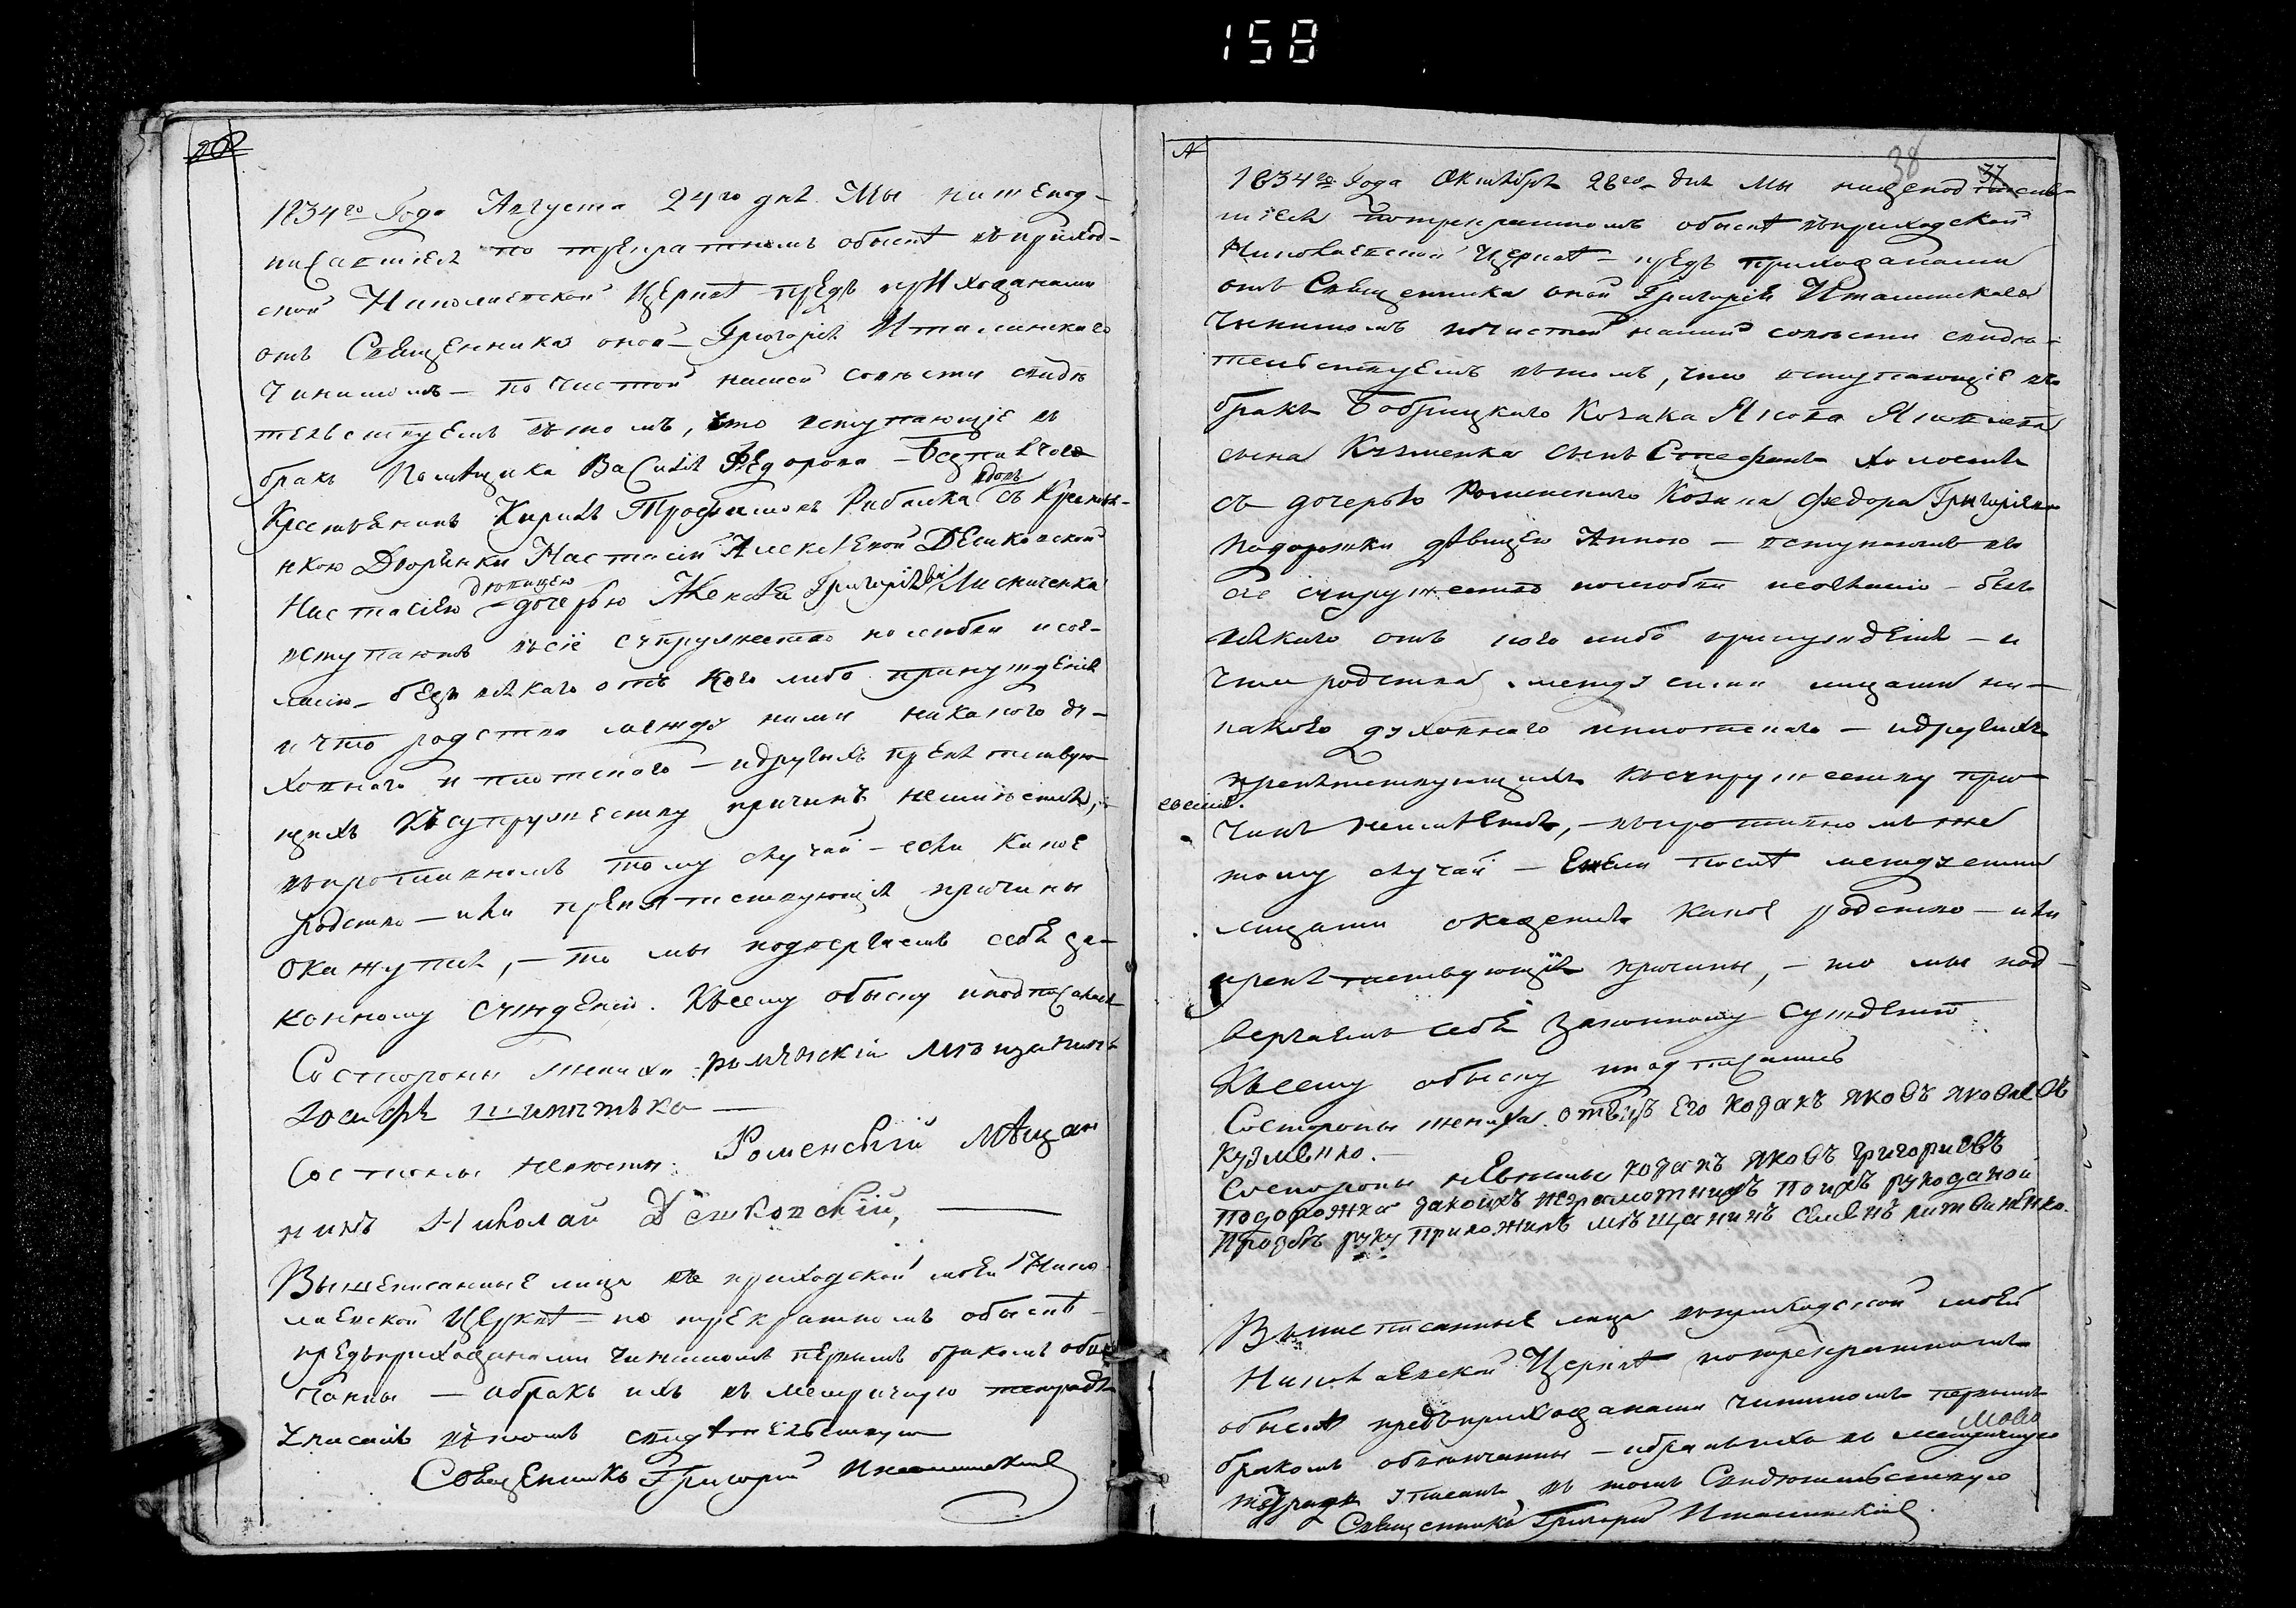 158
1834го Года Августа 24го дня Мы нижепод-
писавшіеся по трекратномъ обыскѣ въ приход-
ской Николаевской Церквѣ предъ прихожанами
отъ Священника оной Григорія Италинскаго
чинимомъ – по чистой нашей совѣсти свидѣ
тельствуемъ въ томъ, что вступающіе въ
бракъ Помѣщика Василія Федорова
Крестьянинъ Кирилъ Трофимовъ Рибалка вдовъ съ Крестьян-
кою Дворянки Настасіи Алексѣевой Дешковской
Настасіею дѣвицею дочерью Григоріева Лисиченка
вступаютъ въ сіе супружество по любви и сог-
ласію – безъ всякаго отъ кого либо принужденія
и что родства между ними никакого ду-
ховнаго и плотскаго – и другихъ препятствую
щихъ къ супружеству причинъ неимѣется,
въ противномъ тому случаѣ – если какое
родство – или препятствующія причины
окажутся, – то мы подвергаемъ себѣ за-
конному сужденію. Къ сему обыску и подписались
Состороны жениха роменскій мѣщанинъ
Іосифъ
Состороны невесты: Роменскій Мѣщан
нинъ Николай Дешковскій,
Вышеписанные лица въ приходской моей Нико-
лаевской Церквѣ – по трекратномъ обыскѣ –
предъ прихожанами чинимомъ первымъ бракомъ обвѣн
чанны – и бракъ ихъ въ метричную тетрадь
уписанъ въ томъ свидѣтельствую
Священникъ Григорій Италинскій
38 37
1834го Года Октября 28го дня Мы нижеподписав-
шіеся по трекратномъ обыскѣ въ приходской
Николаевской Церквѣ – предъ прихожанами
отъ Священника оной Григорія Италинскаго
чинимомъ по чистой нашей совѣсти свидѣ-
тельствуемъ въ томъ, что вступающіе въ
бракъ Бобрицкаго Козака Якова Яковлева
сына Кузменка сынъ Стефанъ холостъ
съ дочерью Роменскаго Козака Федора Григоріева
Подорожки дѣвицею Анною – вступаютъ въ
сіе супружество по любви и согласію – безъ
всякаго отъ кого либо принужденія – и
что родства между сими лицами ни-
какого духовнаго и плотскаго – и другихъ
препятствующихъ къ супружеству при-
чинъ неимѣется, – въ противномъ же
тому случаѣ – Ежели послѣ между сими
лицами окажется какое родство – или
препятствующія причины, – то мы под-
вергаемъ себѣ законному сужденію
Къ сему обыску и подписались
Состороны жениха. отецъ Его козакъ яковъ яковлевъ
Кузменко.
Состороны невѣсты козакъ яковъ григориевъ
подорожка закоихъ неграмотнихъ по ихъ рукоданой
прозбѣ руку приложилъ мѣщанинъ семенъ литвиненко.
Вышеписанные лица въ приходской моей
Николаевской Церквѣ по трекратномъ
обыскѣ предъ прихожанами чинимомъ первымъ
бракомъ обвѣнчанны – и бракъ ихъ въ метричную
тетрадь уписанъ въ томъ Свидѣтельствую
Священникъ Григорій Италинскій